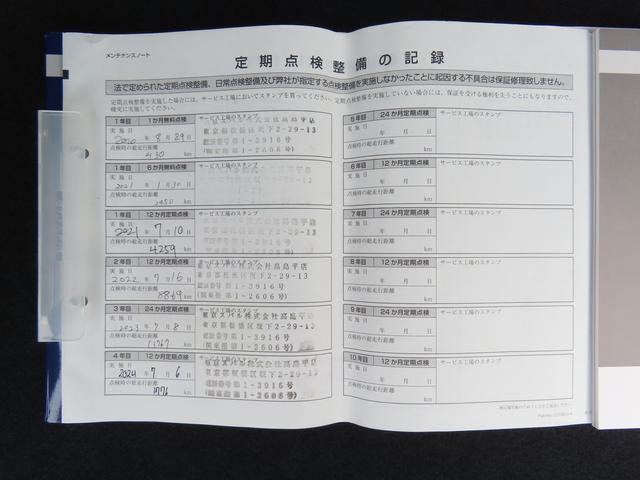 メンテナンスノート
定期点検整備の記録
法で定められた定期点検整備、日常点検整備及び弊社が指定する点検整備を実施しなかったことに起因する不具合は保証修理致しません。
定期点検整備を実施した場合には、サービス工場においてスタンプを貰ってください。定期点検整備を実施していない場合には、保証を受ける権利を失うことにもなりますので、
確実に実施してください。
1年目 1か月無料点検 サービス工場のスタンプ
実施日 年 8月 29日
点検時の総走行距離
430 km
東京都板橋区坂下2-29-13
1-3916号
1-2606号)
1年目 6か月無料点検 サービス工場のスタンプ
実施日 2021年 1月 30日
点検時の総走行距離
km
1年目 12か月定期点検 サービス工場のスタンプ
実施日 2021年 7月 10日
点検時の総走行距離
4259 km
2年目 12か月定期点検 サービス工場のスタンプ
実施日 2022年 7月 16日
点検時の総走行距離
8869 km
東京スバル株式会社高島平店
東京都板橋区坂下2-29-13
1-3916号
1-2606号)
3年目 24か月定期点検 サービス工場のスタンプ
実施日 2023年 7月 8日
点検時の総走行距離
11767 km
東京スバル株式会社高島平店
東京都板橋区坂下2-29-13
1-3916号
1-2606号)
4年目 12か月定期点検 サービス工場のスタンプ
実施日 2024年 7月 6日
点検時の総走行距離
km
東京スバル株式会社高島平店
東京都板橋区坂下2-29-13
1-3916号
1-2606号)
5年目 24か月定期点検 サービス工場のスタンプ
実施日 年 月 日
点検時の総走行距離
km
6年目 12か月定期点検 サービス工場のスタンプ
実施日 年 月 日
点検時の総走行距離
km
7年目 24か月定期点検 サービス工場のスタンプ
実施日 年 月 日
点検時の総走行距離
km
8年目 12か月定期点検 サービス工場のスタンプ
実施日 年 月 日
点検時の総走行距離
km
9年目 24か月定期点検 サービス工場のスタンプ
実施日 年 月 日
点検時の総走行距離
km
10年目 12か月定期点検 サービス工場のスタンプ
実施日 年 月 日
点検時の総走行距離
km